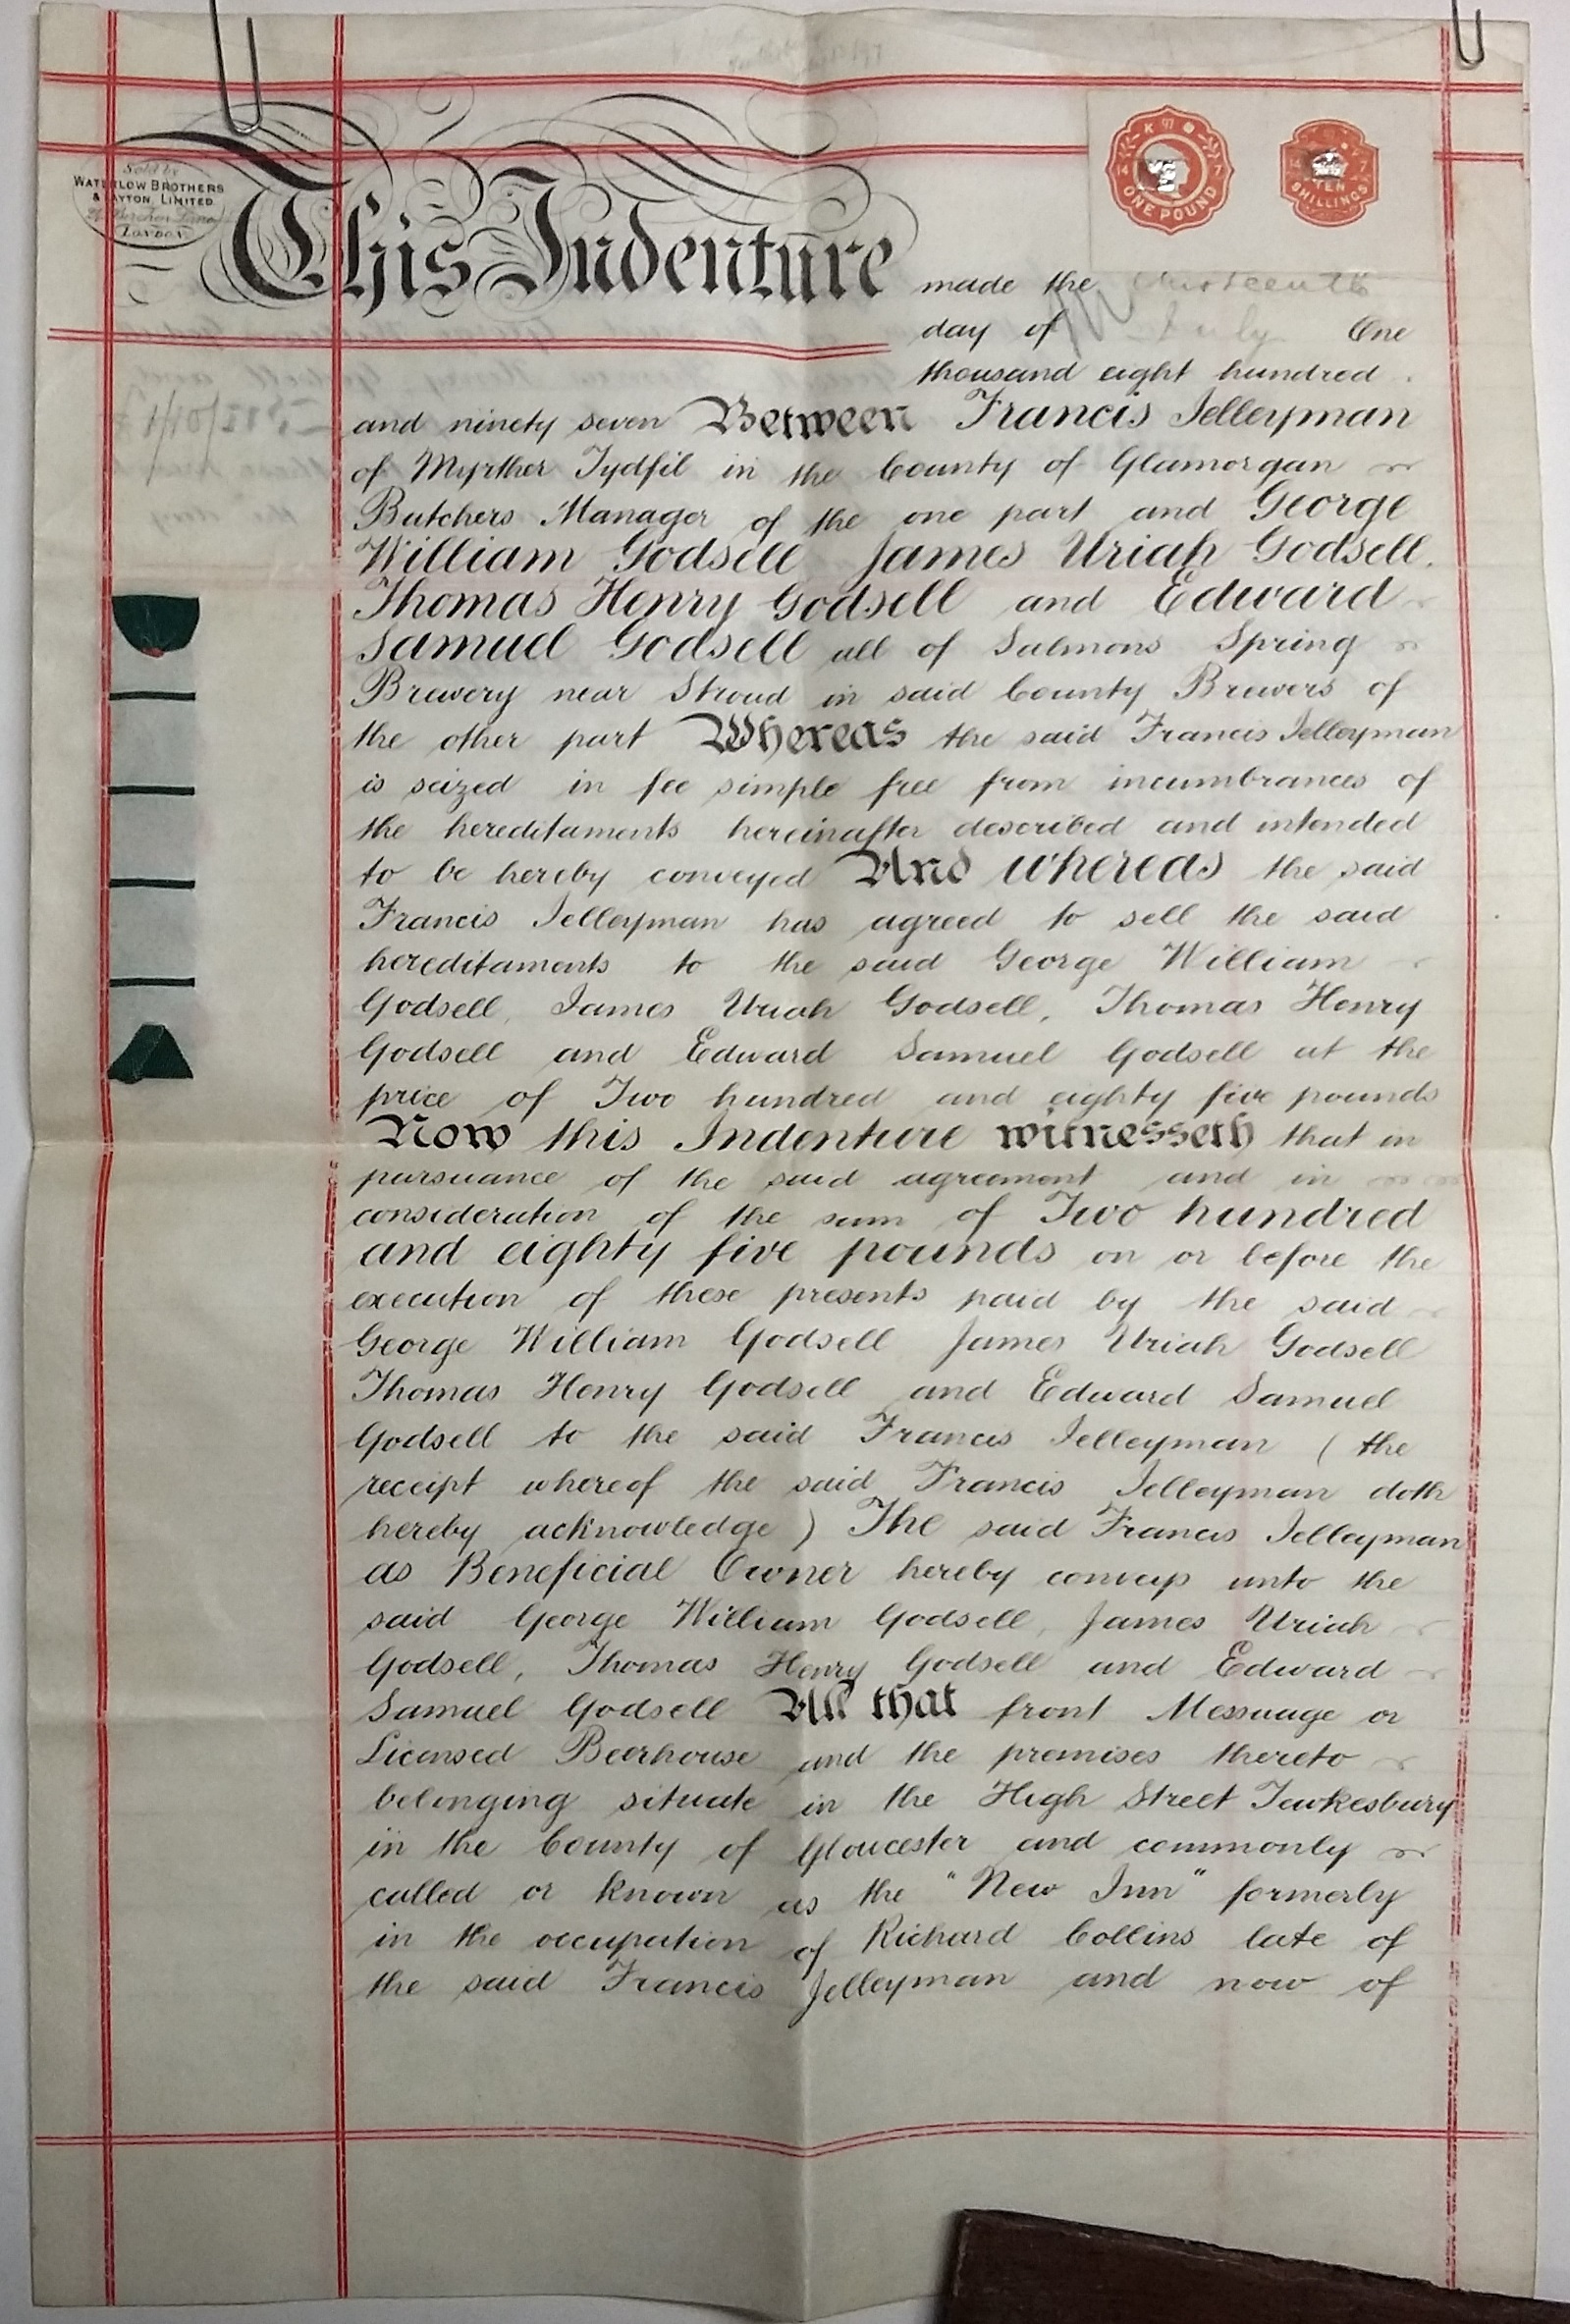 Sold by
WATERLOW BROTHERS
& LAYTON, LIMITED
Birchin Lane
LONDON
K 97
14 7
ONE POUND
TEN
SHILLINGS
This Indenture made the thirteenth
day of July One
thousand eight hundred
and ninety seven Between Francis Jelleyman
of Myrther Tydfil in the County of Glamorgan
Butchers Manager of the one part and George
William Godsell James Uriah Godsell.
Thomas Henry Godsell and Edward
Samuel Godsell all of Salmons Spring
Brewery near Stroud in said County Brewers of
the other part Whereas the said Francis Jelleyman
is seized in fee simple free from incumbrances of
the hereditaments hereinafter described and intended
to be hereby conveyed And whereas the said
Francis Jelleyman has agreed to sell the said
hereditaments to the said George William
Godsell, James Uriah Godsell, Thomas Henry
Godsell and Edward Samuel Godsell at the
price of Two hundred and eighty five pounds
Now this Indenture witnesseth that in
pursuance of the said agreement and in
consideration of the sum of Two hundred
and eighty five pounds on or before the
execution of these presents paid by the said
George William Godsell James Uriah Godsell
Thomas Henry Godsell and Edward Samuel
Godsell to the said Francis Jelleyman (the
receipt whereof the said Francis Jelleyman doth
hereby acknowledge) The said Francis Jelleyman
as Beneficial Owner hereby conveys unto the
said George William Godsell, James Uriah
Godsell, Thomas Henry Godsell and Edward
Samuel Godsell All that front Messuage or
Licensed Beerhouse and the premises thereto
belonging situate in the High Street Tewkesbury
in the County of Gloucester and commonly
called or known as the "New Inn" formerly
in the occupation of Richard Collins late of
the said Francis Jelleyman and now of